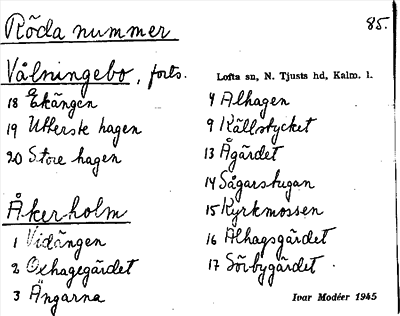 Röda nummer
85.
Vålningebo, forts.
18 Ekängen
19 Utterste hagen
20 Store hagen
Åkerholm
1 Vidängen
2 Oxhagegärdet
3 Ängarna
Lofta sn, N. Tjusts hd, Kalm. l.
4 Alhagen
9 Källstycket
13 Ågärdet
14 Sågarstugan
15 Kyrkmossen
16 Alhagsgärdet
17 Sörbygärdet
Ivar Modéer 1945